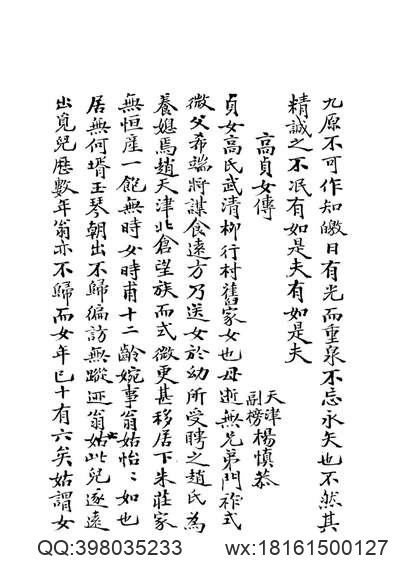 九原不可作知皦日有光而重泉不忘永矢也不然其
精誠之不泯有如是夫有如是夫
高貞女傳
天津
副榜
楊慎恭
貞女高氏武清柳行村舊家女也母逝無兄弟門祚式
微父希端將謀食遠方乃送女於幼所受聘之趙氏為
養媳焉趙天津北倉望族而式微更甚移居下朱莊家
無恒產一飽無時女時甫十二齡婉事翁姑怡〻如也
居無何壻玉琴朝出不歸徧訪無蹤迹翁姑以兒逐遠
出覓兒歷數年翁亦不歸而女年已十有六矣姑謂女
QQ:398035233 wx:18161500127